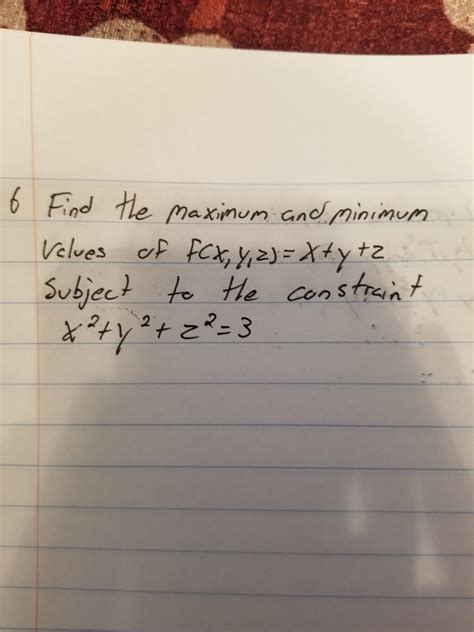 6 Find the maximum and minimum
Values of f(x,y,z)=x+y+z
Subject to the constraint
x²+y²+z²=3